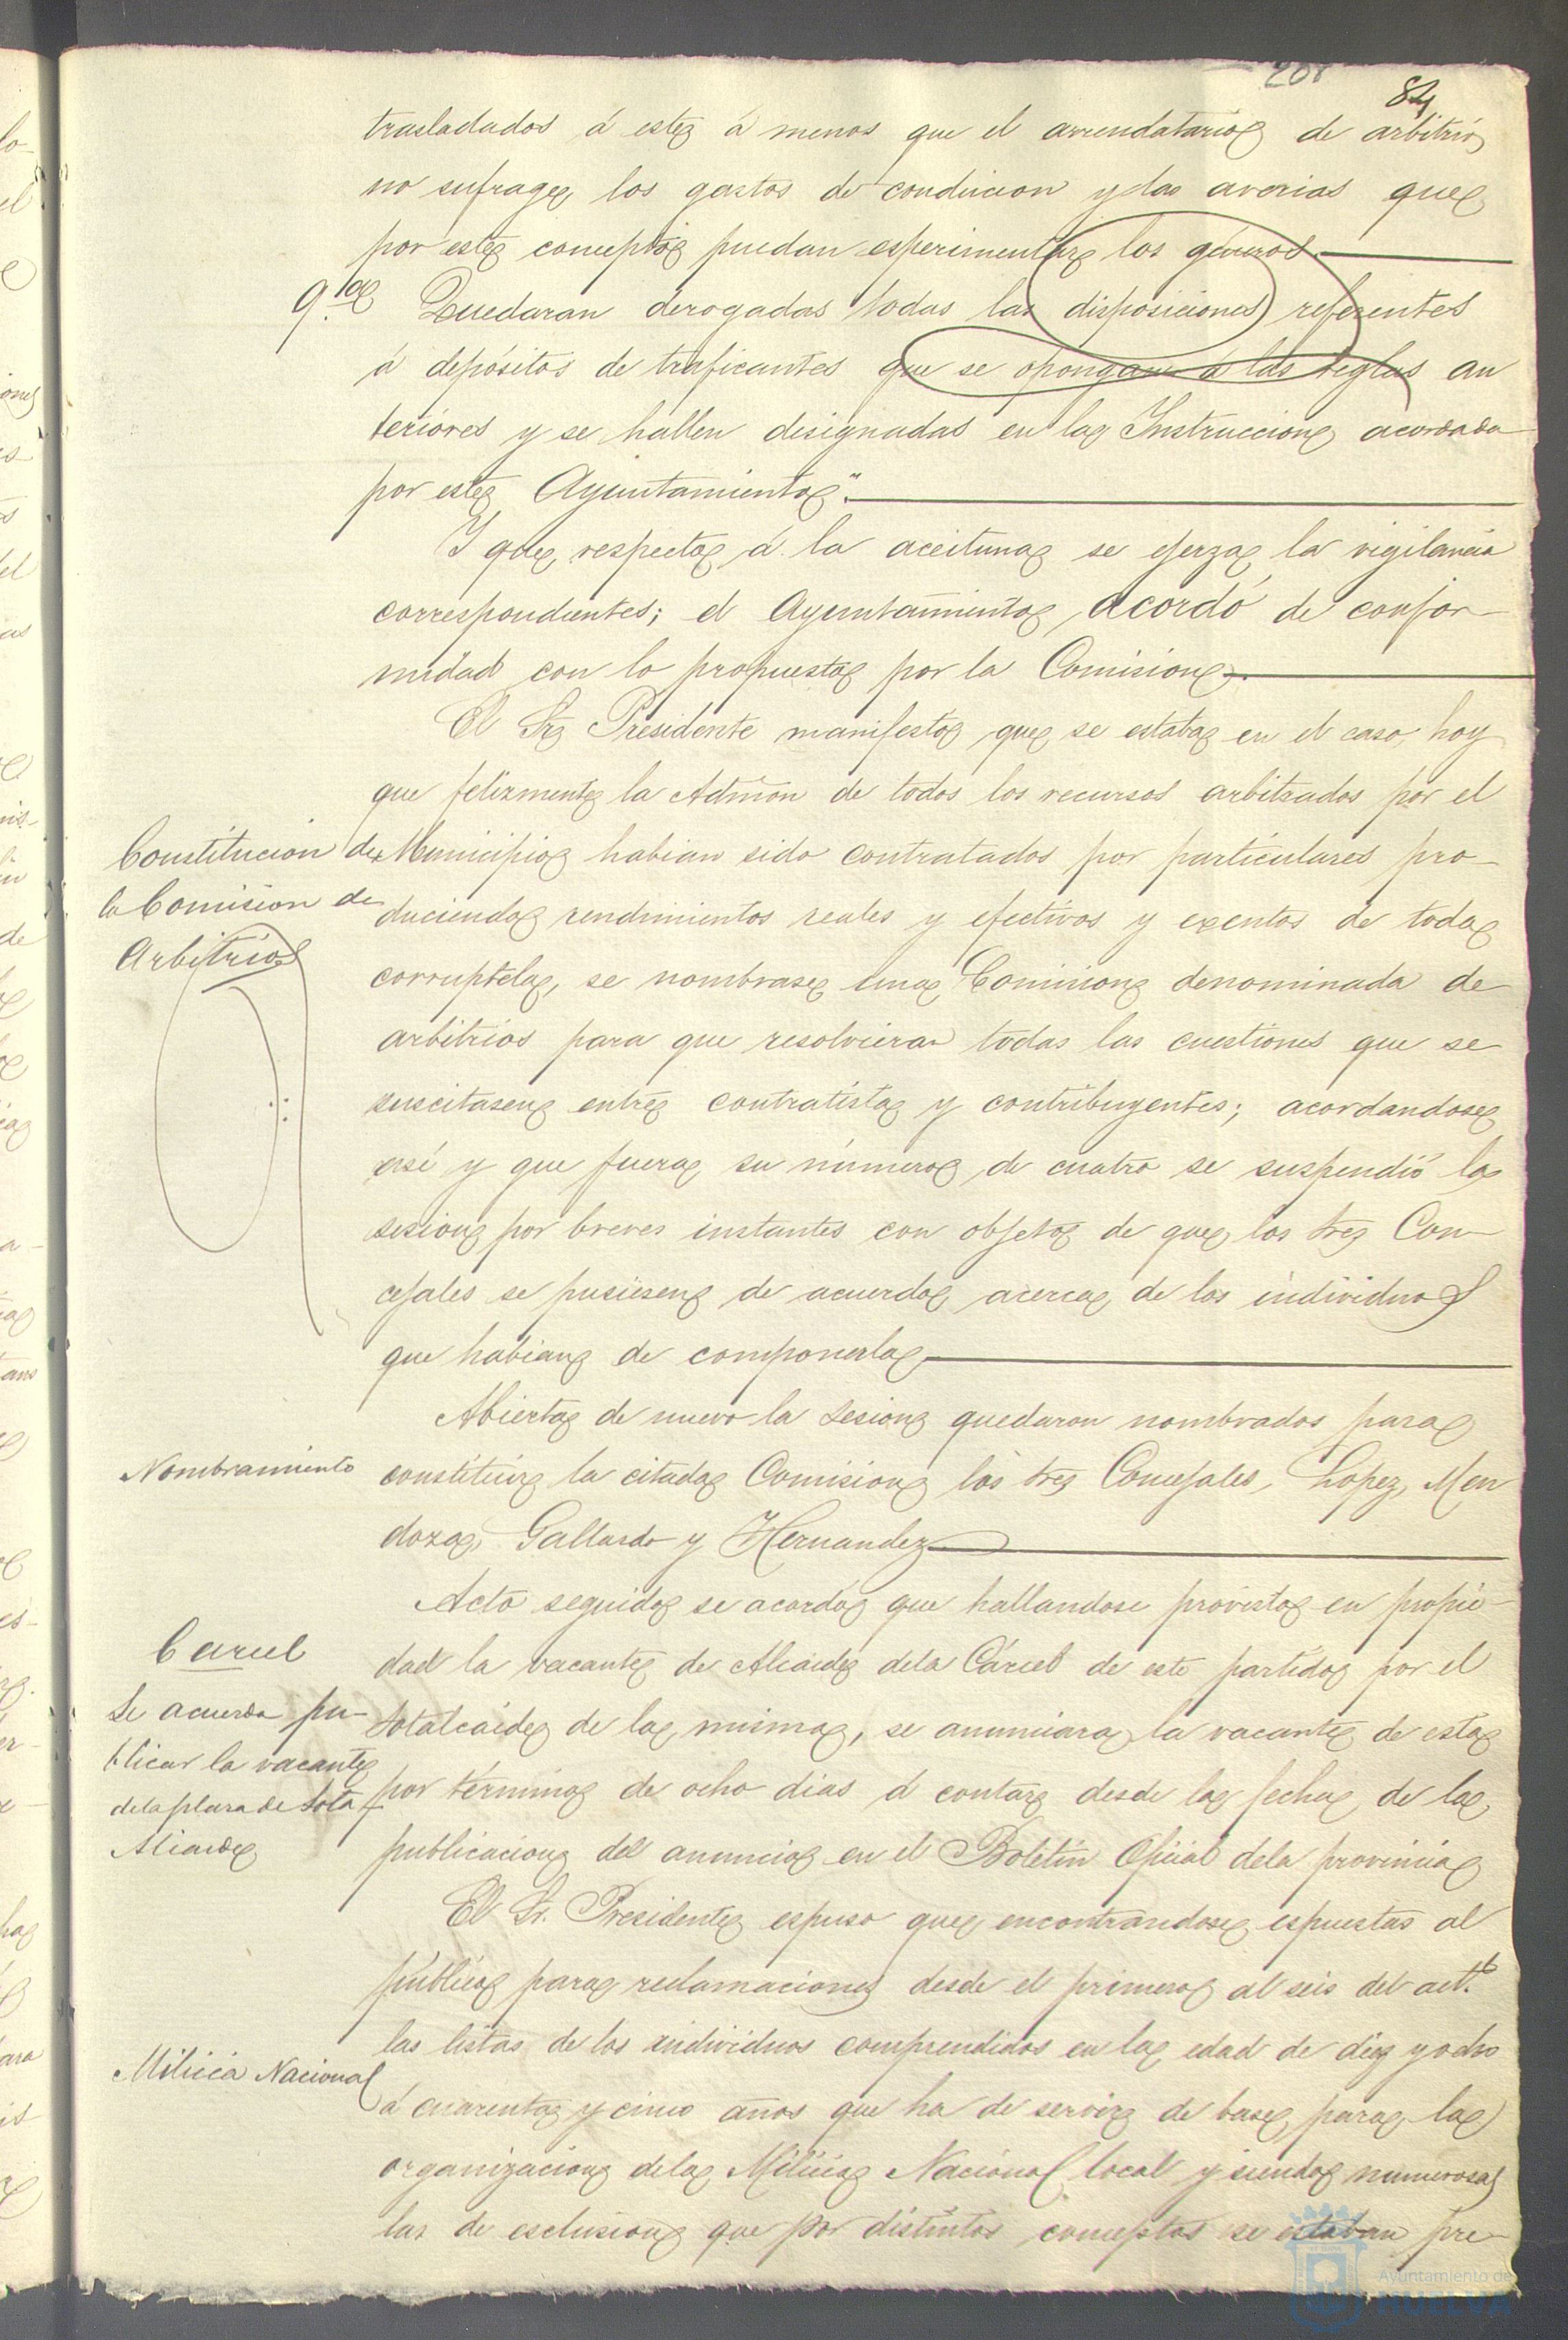 208
84
trasladados á este á menos que el arrendatario de arbitrios
no sufrague los gastos de conduccion y las averias que
por este concepto puedan esperimentar los géneros.
9.ª Quedaran derogadas todas las disposiciones referentes
á depósitos de traficantes que se opongan á las reglas an
teriores y se hallen designadas en la Instruccion acordada
por este Ayuntamiento".
Y que respecto á la aceituna se ejerza la vigilancia
correspondiente; el Ayuntamiento acordó de confor-
midad con lo propuesto por la Comision.
El Sr. Presidente manifestó que se estaba en el caso, hoy
que felizmente la Admon de todos los recursos arbitrados por el
Constitucion de
la Comision de
Arbitrios
Municipio habian sido contratados por particulares pro-
duciendo rendimientos reales y efectivos y exentos de toda
corruptela, se nombrase una Comision denominada de
arbitrios para que resolviera todas las cuestiones que se
suscitasen entre contratista y contribuyentes; acordandose
asi y que fuera su número de cuatro se suspendió la
sesion por breves instantes con objeto de que los Sres Con-
cejales se pusiesen de acuerdo acerca de los individuos
que habian de componerla
Abierta de nuevo la Sesion quedaron nombrados para
Nombramiento
constituir la citada Comision los Sres Concejales, Lopez, Men
doza, Gallardo y Hernandez
Acto seguido se acordó que hallandose provista en propie-
Carcel
Se acuerda pu-
blicar la vacante
de la plaza de Sota
Alcaide
dad la vacante de Alcaide dela Cárcel de este partido por el
Sotalcaide de la misma, se anunciara la vacante de esta
por término de ocho dias á contar desde la fecha de la
publicacion del anuncio en el Boletin Oficial dela provincia
El Sr. Presidente espuso que encontrandose espuestas al
público para reclamaciones desde el primero al seis del act.l
las listas de los individuos comprendidos en la edad de diez y ocho
Milicia Nacional
á cuarenta y cinco años que ha de servir de base para la
organizacion dela Milicia Nacional local y siendo numerosas
las de esclusion que por distintos conceptos se estaban pre-
Ayuntamiento de
HUELVA